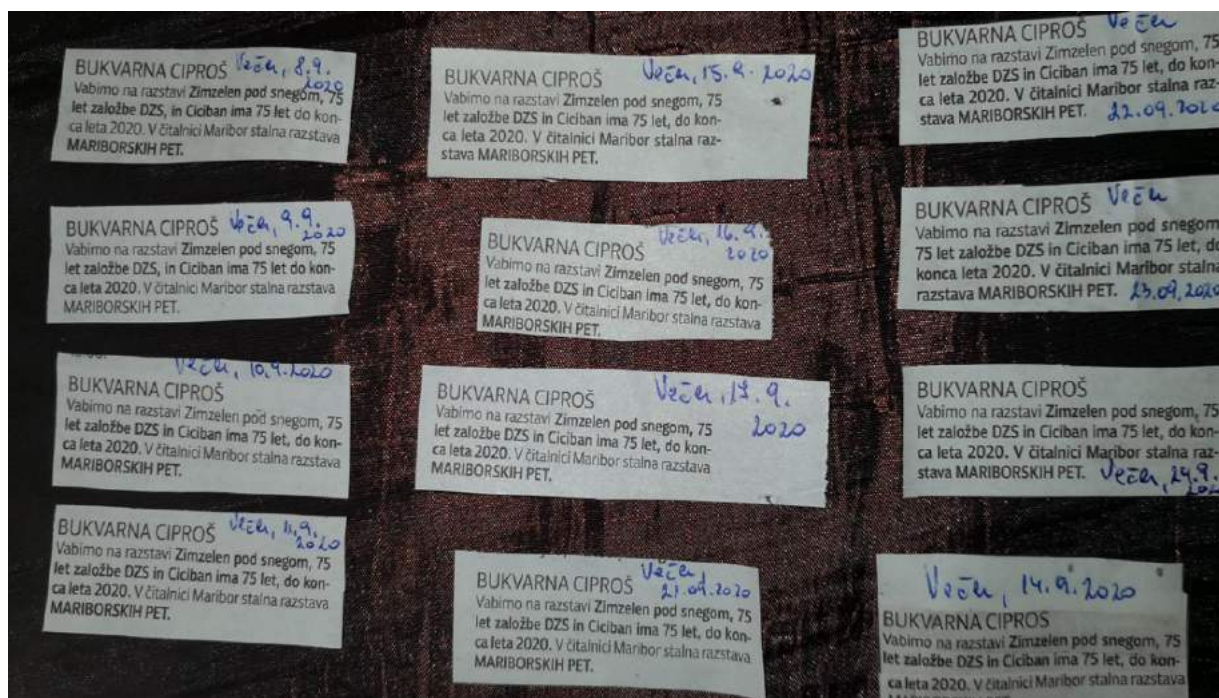 BUKVARNA CIPROŠ Večer, 8.9.
2020
Vabimo na razstavi Zimzelen pod snegom, 75
let založbe DZS, in Ciciban ima 75 let, do kon-
ca leta 2020. V čitalnici Maribor stalna razstava
MARIBORSKIH PET.
BUKVARNA CIPROŠ Večer, 9.9.
2020
Vabimo na razstavi Zimzelen pod snegom, 75
let založbe DZS, in Ciciban ima 75 let do kon-
ca leta 2020. V čitalnici Maribor stalna razstava
MARIBORSKIH PET.
Večer, 10.9.2020
BUKVARNA CIPROŠ
Vabimo na razstavi Zimzelen pod snegom, 75
let založbe DZS in Ciciban ima 75 let, do kon-
ca leta 2020. V čitalnici Maribor stalna razstava
MARIBORSKIH PET.
BUKVARNA CIPROŠ Večer, 11.9.
2020
Vabimo na razstavi Zimzelen pod snegom, 75
let založbe DZS in Ciciban ima 75 let, do kon-
ca leta 2020. V čitalnici Maribor stalna razstava
MARIBORSKIH PET.
BUKVARNA CIPROŠ Večer, 15.9.2020
Vabimo na razstavi Zimzelen pod snegom, 75
let založbe DZS in Ciciban ima 75 let, do kon-
ca leta 2020. V čitalnici Maribor stalna raz-
stava MARIBORSKIH PET.
Večer, 16.9.
BUKVARNA CIPROŠ 2020
Vabimo na razstavi Zimzelen pod snegom, 75
let založbe DZS in Ciciban ima 75 let, do kon-
ca leta 2020. V čitalnici Maribor stalna razstava
MARIBORSKIH PET.
BUKVARNA CIPROŠ Večer, 17.9.
2020
Vabimo na razstavi Zimzelen pod snegom, 75
let založbe DZS in Ciciban ima 75 let, do kon-
ca leta 2020. V čitalnici Maribor stalna razstava
MARIBORSKIH PET.
Večer,
BUKVARNA CIPROŠ 21.09.2020
Vabimo na razstavi Zimzelen pod snegom, 75
let založbe DZS in Ciciban ima 75 let, do kon-
ca leta 2020. V čitalnici Maribor stalna razstava
MARIBORSKIH PET.
BUKVARNA CIPROŠ Večer
Vabimo na razstavi Zimzelen pod snegom, 75
let založbe DZS in Ciciban ima 75 let, do kon-
ca leta 2020. V čitalnici Maribor stalna raz-
stava MARIBORSKIH PET. 22.09.2020
BUKVARNA CIPROŠ Večer
Vabimo na razstavi Zimzelen pod snegom,
75 let založbe DZS in Ciciban ima 75 let, do
konca leta 2020. V čitalnici Maribor stalna
razstava MARIBORSKIH PET. 23.09.2020
BUKVARNA CIPROŠ
Vabimo na razstavi Zimzelen pod snegom, 75
let založbe DZS in Ciciban ima 75 let, do kon-
ca leta 2020. V čitalnici Maribor stalna raz-
stava MARIBORSKIH PET. Večer, 24.9.
2020
Večer, 14.9.2020
BUKVARNA CIPROŠ
Vabimo na razstavi Zimzelen pod snegom, 75
let založbe DZS in Ciciban ima 75 let, do kon-
ca leta 2020. V čitalnici Maribor stalna razstava